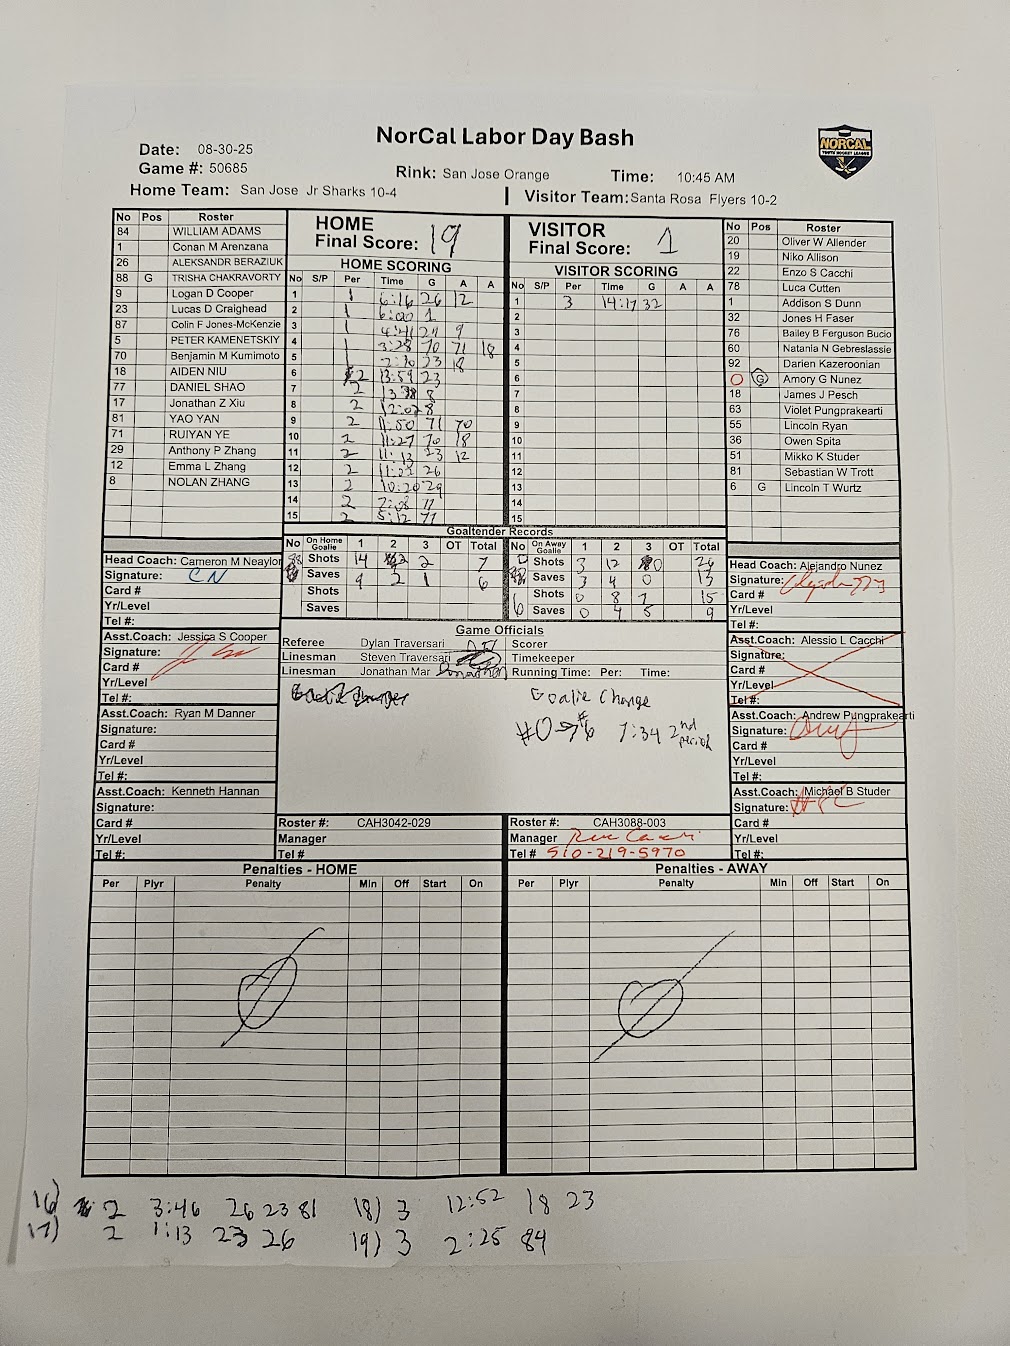 NorCal Labor Day Bash
NORCAL
YOUTH HOCKEY LEAGUE
Date: 08-30-25
Game #: 50685
Rink: San Jose Orange
Time: 10:45 AM
Home Team: San Jose Jr Sharks 10-4
Visitor Team: Santa Rosa Flyers 10-2
No Pos Roster
84 WILLIAM ADAMS
1 Conan M Arenzana
26 ALEKSANDR BERAZIUK
88 G TRISHA CHAKRAVORTY
9 Logan D Cooper
23 Lucas D Craighead
87 Colin F Jones-McKenzie
5 PETER KAMENETSKIY
70 Benjamin M Kumimoto
18 AIDEN NIU
77 DANIEL SHAO
17 Jonathan Z Xiu
81 YAO YAN
71 RUIYAN YE
29 Anthony P Zhang
12 Emma L Zhang
8 NOLAN ZHANG
HOME
Final Score: 19
HOME SCORING
No S/P Per Time G A A
1 1 6:16 26 12
2 1 6:00 1
3 1 4:41 29 9
4 1 3:28 70 71 18
5 1 23 18
6 2 13:59 23
7 2 8
8 2 12:02 8
9 2 11:50 71 70
10 2 11:27 70 18
11 2 11:13 23 12
12 2 26
13 2 10:20 29
14 2
15 2 5:12 71
VISITOR
Final Score: 1
VISITOR SCORING
No S/P Per Time G A A
1 3 14:17 32
2
3
4
5
6
7
8
9
10
11
12
13
14
15
No Pos Roster
20 Oliver W Allender
19 Niko Allison
22 Enzo S Cacchi
78 Luca Cutten
1 Addison S Dunn
32 Jones H Faser
76 Bailey B Ferguson Bucio
60 Natania N Gebreslassie
92 Darien Kazeroonian
0 G Amory G Nunez
18 James J Pesch
63 Violet Pungprakearti
55 Lincoln Ryan
36 Owen Spita
51 Mikko K Studer
81 Sebastian W Trott
6 G Lincoln T Wurtz
Goaltender Records
No On Home Goalie 1 2 3 OT Total
Shots 14 2 7
Saves 2 1 6
Shots
Saves
No On Away Goalie 1 2 3 OT Total
Shots 3 12 0
Saves 3 0 13
6 Shots 0 8 7 15
Saves 0 4 5 9
Game Officials
Referee Dylan Traversari
Linesman Steven Traversari
Linesman Jonathan Mar
Scorer
Timekeeper
Running Time: Per: Time:
Goalie Change
#0→#6 7:34 2nd period
Head Coach: Cameron M Neaylor
Signature: CN
Card #
Yr/Level
Tel #:
Asst.Coach: Jessica S Cooper
Signature:
Card #
Yr/Level
Tel #:
Asst.Coach: Ryan M Danner
Signature:
Card #
Yr/Level
Tel #:
Asst.Coach: Kenneth Hannan
Signature:
Card #
Yr/Level
Tel #:
Head Coach: Alejandro Nunez
Signature:
Card #
Yr/Level
Tel #:
Asst.Coach: Alessio L Cacchi
Signature:
Card #
Yr/Level
Tel #:
Asst.Coach: Andrew Pungprakearti
Signature:
Card #
Yr/Level
Tel #:
Asst.Coach: Michael B Studer
Signature:
Card #
Yr/Level
Tel #:
Roster #: CAH3042-029
Manager
Tel #
Roster #: CAH3088-003
Manager
Tel # 510-219-5970
Penalties - HOME
Per Plyr Penalty Min Off Start On
Penalties - AWAY
Per Plyr Penalty Min Off Start On
16) 2 3:46 26 23 81 18) 3 12:52 18 23
17) 2 1:13 23 26 19) 3 2:25 84